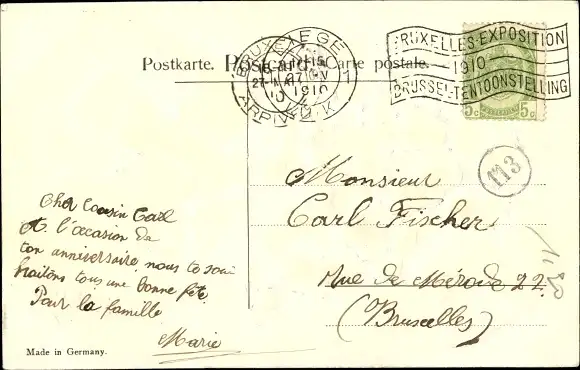 Postkarte. Postcard. Carte postale.
BRUXELLES-EXPOSITION
1910
BRUSSEL-TENTOONSTELLING
5c 5c
LIEGE
1910
113
Monsieur
Carl Fischer
Rue de Mérode 22.
(Bruxelles)
Cher Cousin Carl
A l'occasion de
ton anniversaire nous te sou
haitons tous une bonne fête.
Pour la famille
Marie
Made in Germany.